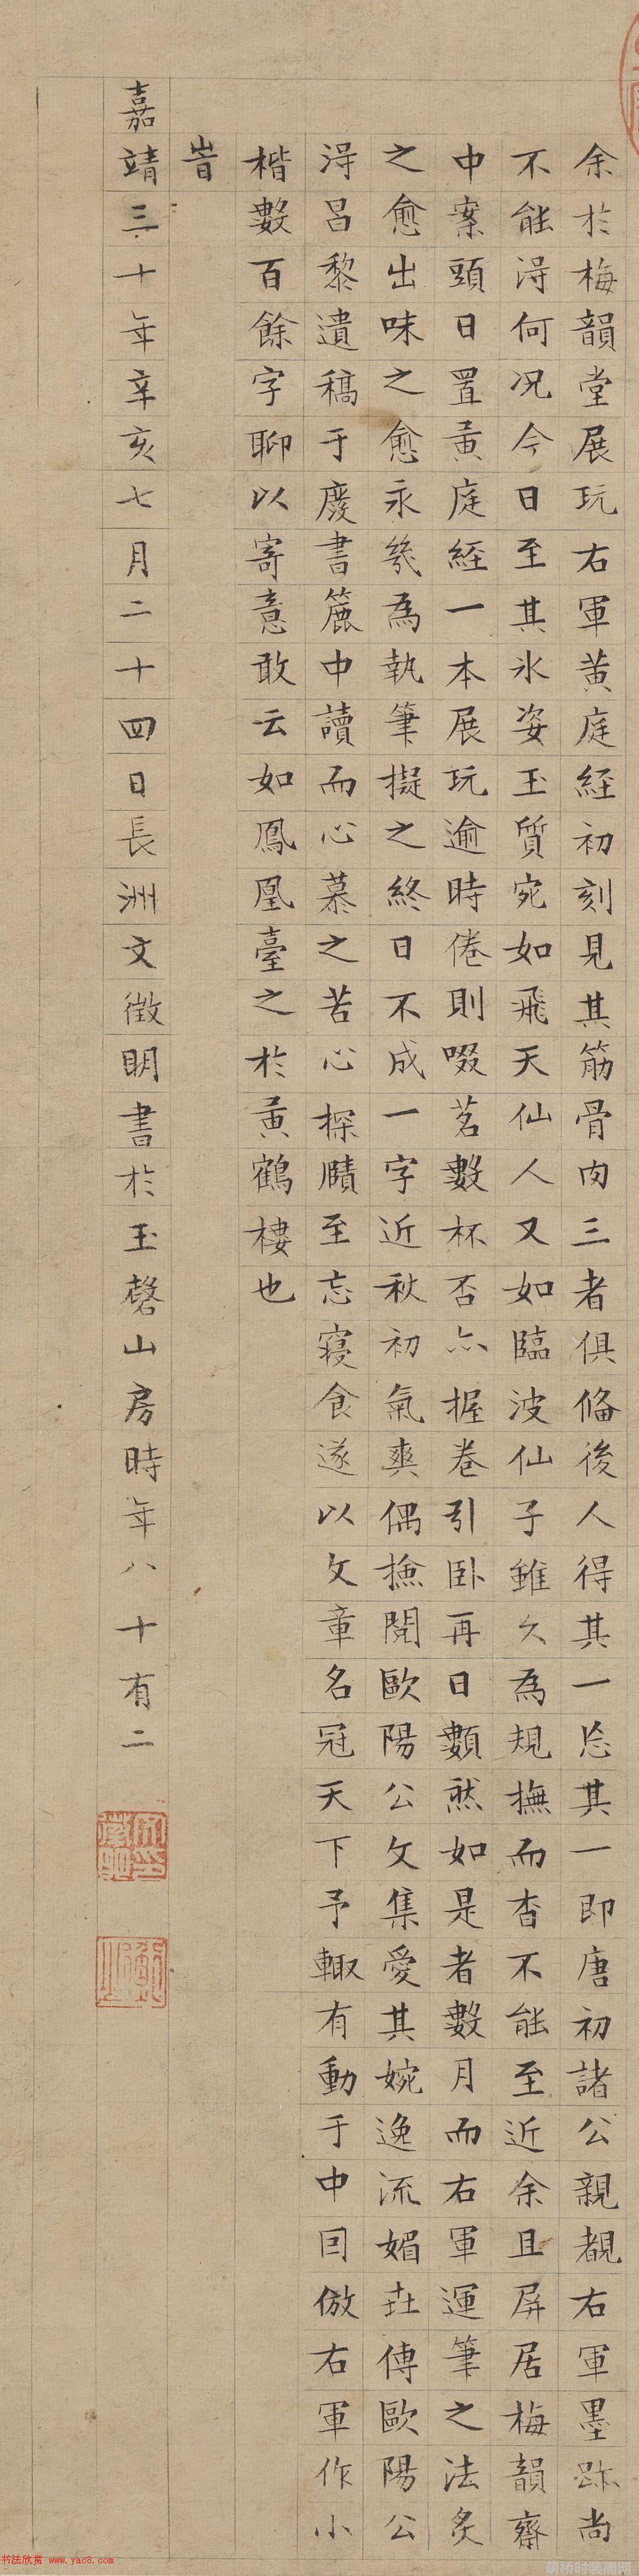 余於梅韻堂展玩右軍黃庭經初刻見其筋骨肉三者俱俻後人得其一忘其一即唐初諸公親覩右軍墨跡尚
不能淂何況今日至其氷姿玉質宛如飛天仙人又如臨波仙子雖久為規撫而杳不能至近余且屏居梅韻齋
中案頭日置黃庭經一本展玩逾時倦則啜茗數杯否亦握卷引臥再日數然如是者數月而右軍運筆之法炙
之愈出味之愈永幾為執筆擬之終日不成一字近秋初氣爽偶撿閱歐陽公文集愛其婉逸流媚世傳歐陽公
淂昌黎遺稿于廢書簏中讀而心慕之苦心探賾至忘寢食遂以文章名冠天下予輙有動于中囙倣右軍作小
楷數百餘字聊以寄意敢云如鳳凰臺之於黃鶴樓也
旹
嘉靖三十年辛亥七月二十四日長洲文徵明書於玉磬山房時年八十有二
书法欣赏 www.yac8.com